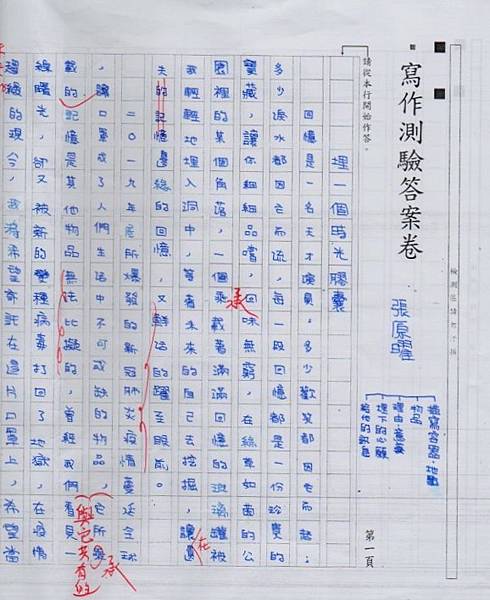 寫作測驗答案卷
請從本行開始作答。
第一頁
張原瑞
描寫容器、地點
物品
理由意義
埋下的心願
給他的訊息
埋一個時光膠囊
回憶是一名天才演員。多少歡笑都因它而起;
多少淚水都因它而流,每一段回憶都是一份珍貴的
寶藏,讓你細細品嚐,回味無窮。在綠草如茵的公
園裡的某個角落,一個乘載著滿滿回憶的玻璃罐被
承
我輕輕地埋入洞中,等著未來的自己去挖掘,讓
在
失的記憶邊緣的回憶,又鮮活的躍至眼前。
二〇一九年底所爆發的新冠肺炎疫情蔓延全球
,讓口罩成了人們生活中不可或缺的物品,它所
承
載的記憶是其他物品無法比擬的,曾經我們看見一
與它共有的
線曙光,卻又被新的變種病毒打回了地獄,在疫情
的現今,我將希望寄託在這片口罩上,希望當